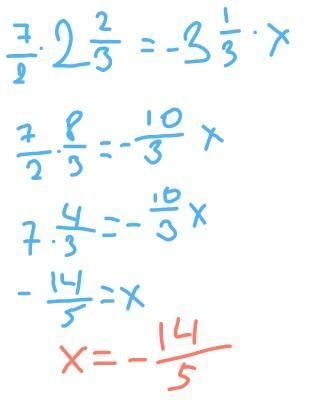 7/2 · 2 2/3 = -3 1/3 · x
7/2 · 8/3 = -10/3 x
7 · 4/3 = -10/3 x
-14/5 = x
x = -14/5